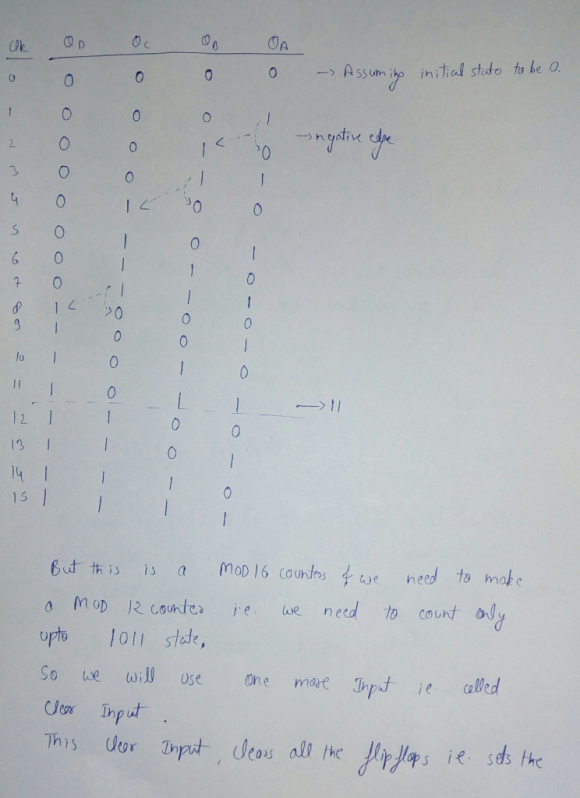 Clk QD QC QB QA
0 0 0 0 0 → Assuming initial state to be 0.
1 0 0 0 1
2 0 0 1 0 → negative edge
3 0 0 1 1
4 0 1 0 0
5 0 1 0 1
6 0 1 1 0
7 0 1 1 1
8 1 0 0 0
9 1 0 0 1
10 1 0 1 0
11 1 0 1 1 → 11
12 1 1 0 0
13 1 1 0 1
14 1 1 1 0
15 1 1 1 1
But this is a MOD 16 counter & we need to make
a MOD 12 counter i.e. we need to count only
upto 1011 state,
So we will use one more Input ie called
Clear Input.
This Clear Input, clears all the flipflops i.e. sets the